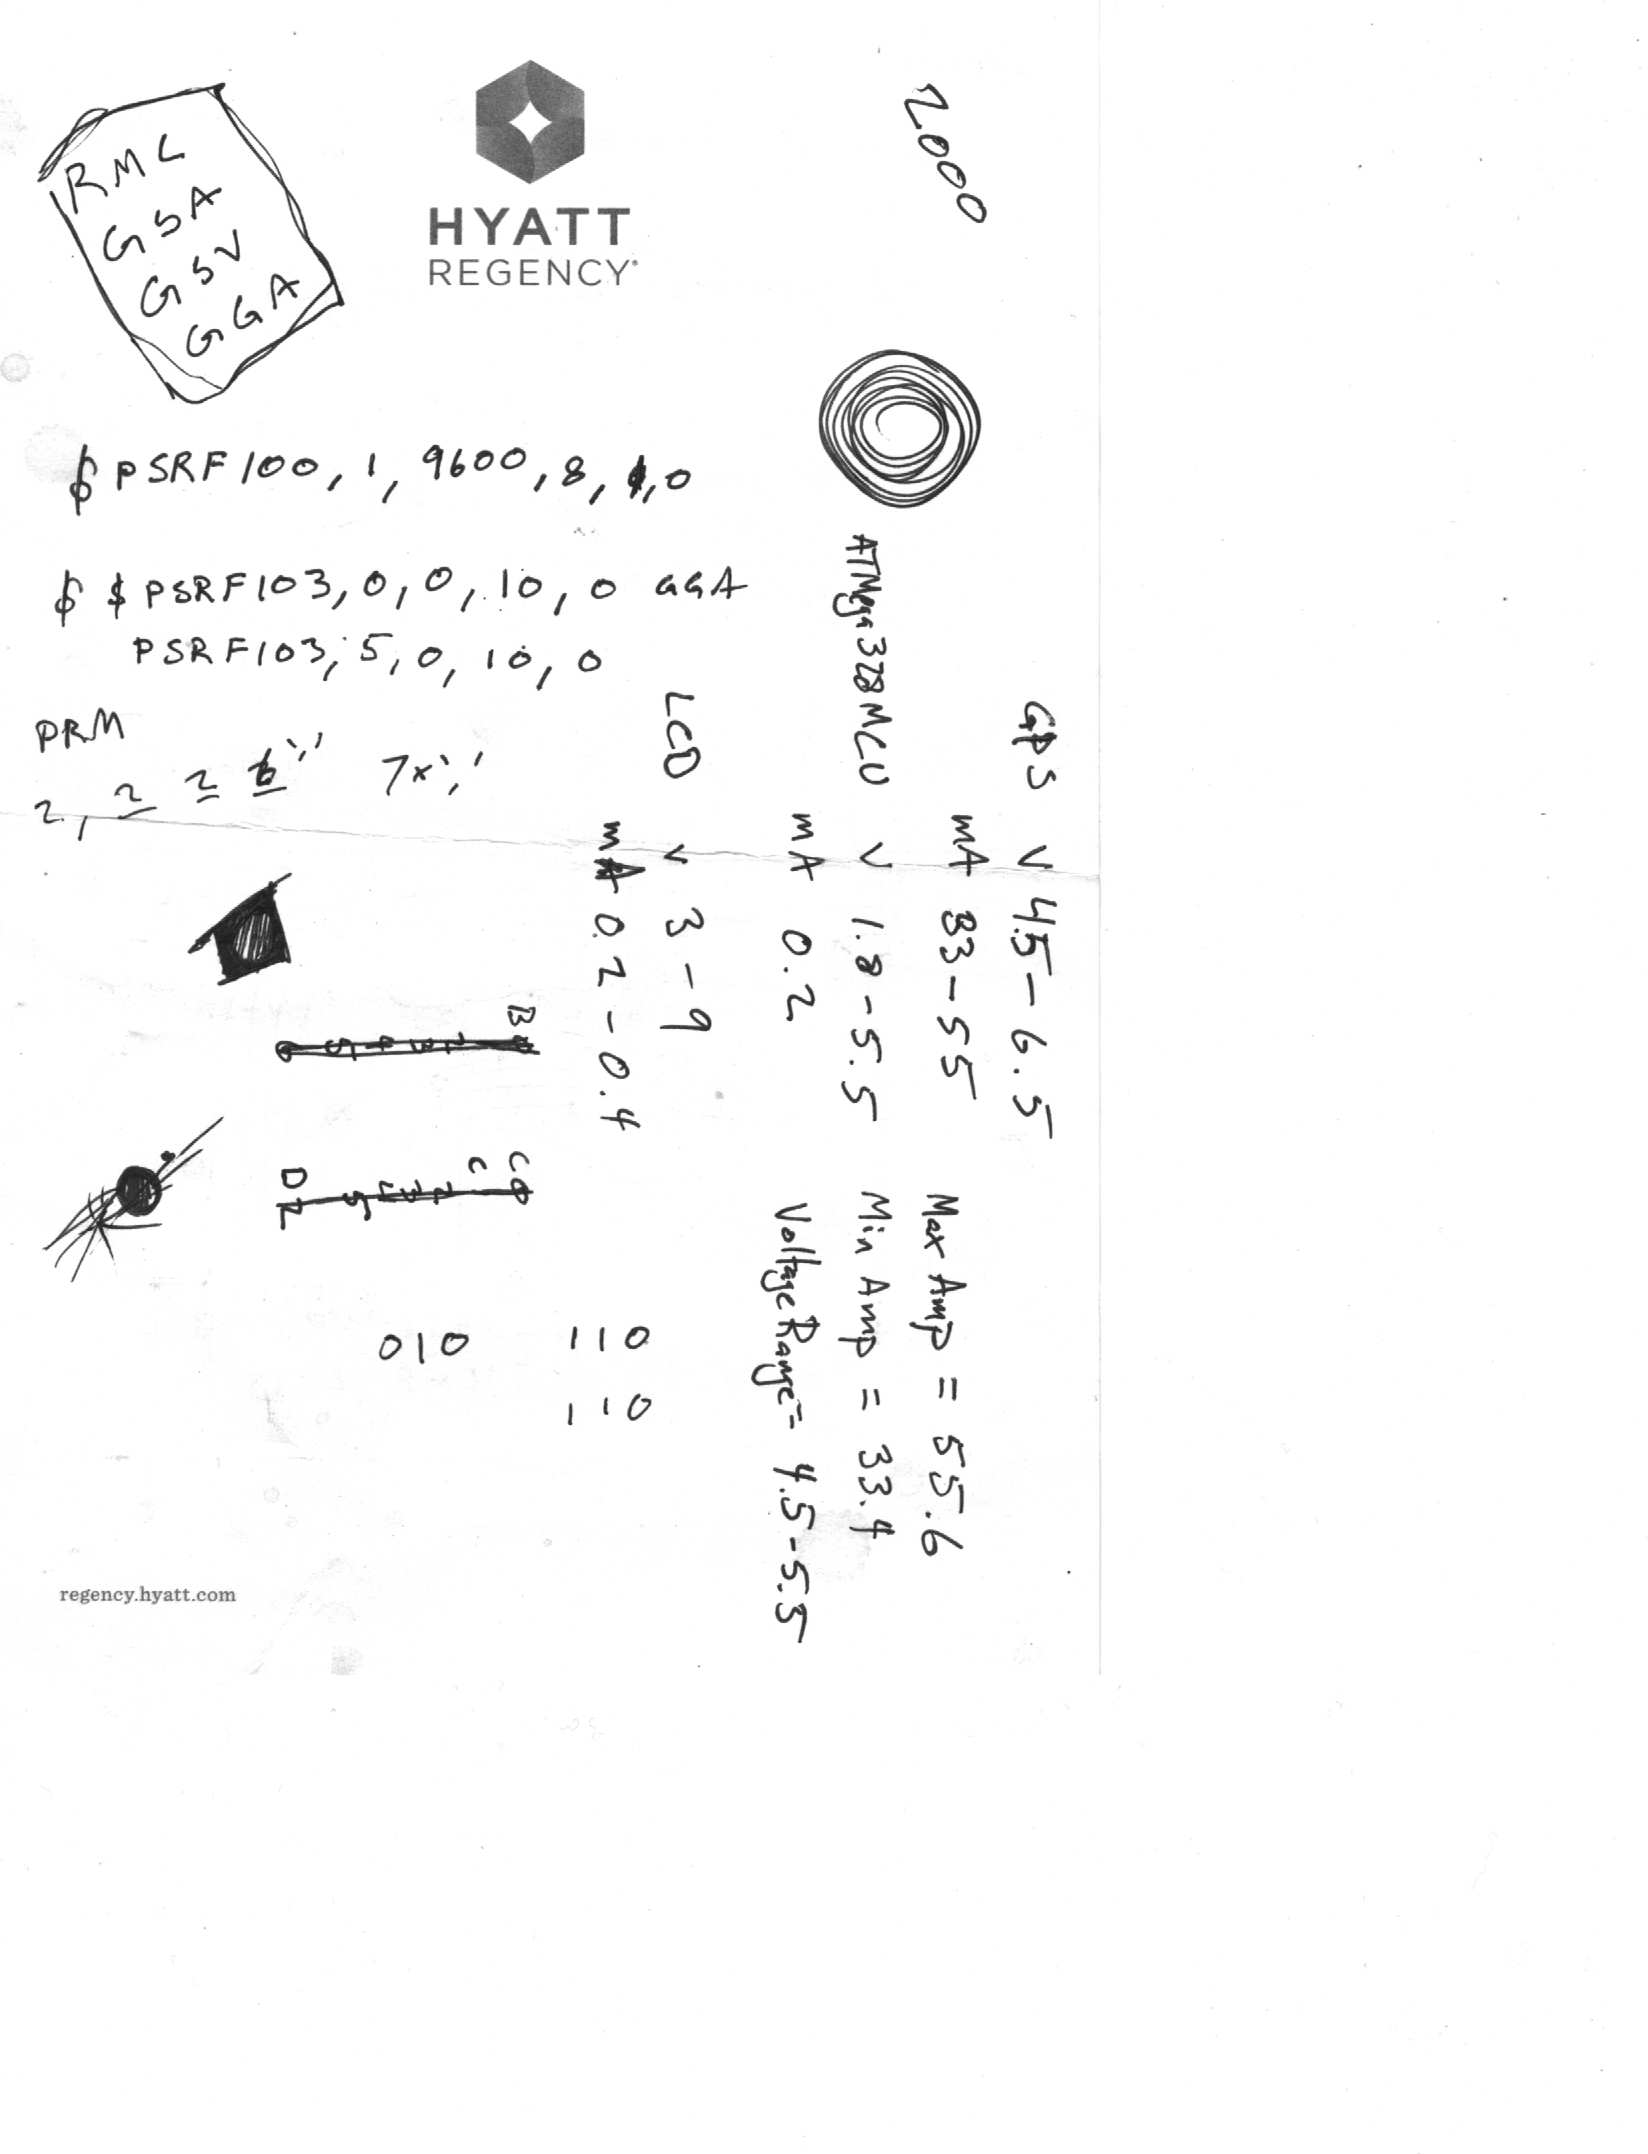 RMC
GSA
GSV
GGA
HYATT
REGENCY®
2000
$PSRF100,1,9600,8,1,0
$ $PSRF103,0,0,10,0 GGA
PSRF103,5,0,10,0
PRM
2, 2 2 6
7x
GPS V 4.5-6.5
mA 33-55
ATMega328 MCU V 1.8-5.5
mA 0.2
LCD V 3-9
mA 0.2-0.4
Max Amp = 55.6
Min Amp = 33.4
Voltage Range = 4.5-5.5
B
C
D
010
110
110
regency.hyatt.com